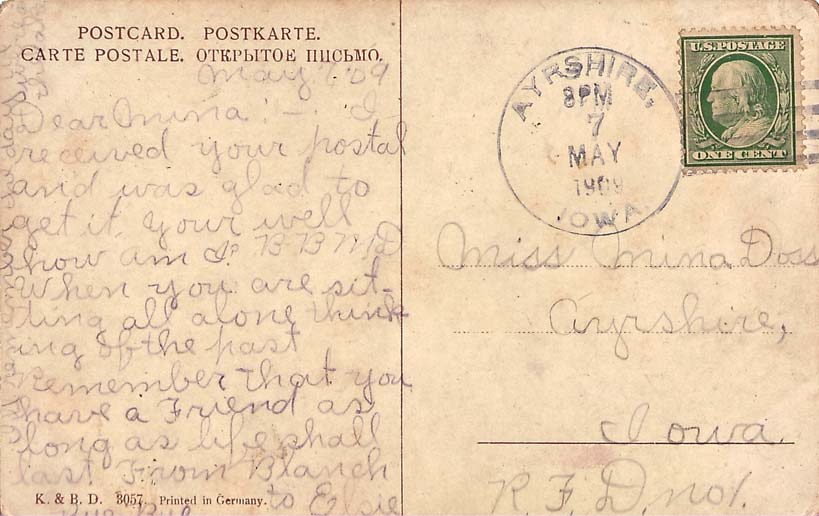 POSTCARD. POSTKARTE.
CARTE POSTALE. ОТКРЫТОЕ ПИСЬМО.
May 7 '09
Dear Mina:- I
received your postal
and was glad to
get it. Your well
how am I? B B N D
When you are sit-
ting all alone think
ing of the past
Remember that you
have a Friend as
long as life shall
last From Blanch
to Elsie
K. & B. D. 3057. Printed in Germany.
AYRSHIRE,
8PM
7
MAY
1909
IOWA.
U.S. POSTAGE
ONE CENT
Miss Mina Doss
Ayrshire,
Iowa.
R. F. D. no 1.